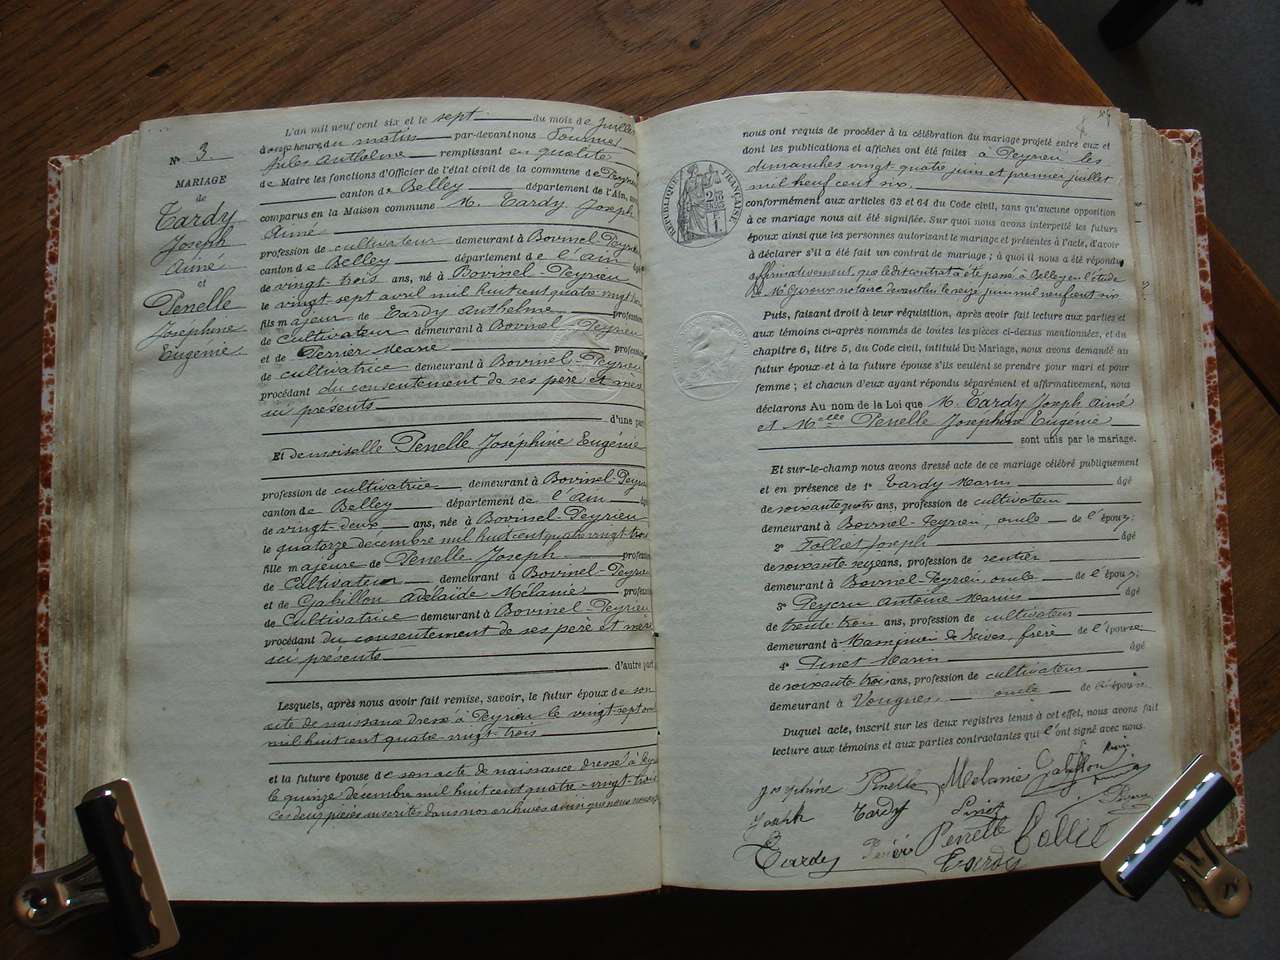 N° 3.
MARIAGE
de
Tardy
Joseph
Aimé
et
Penelle
Joséphine
Eugénie
L'an mil neuf cent six et le sept du mois de juillet
à onze heures du matin par-devant nous
Jules Anthelme remplissant en qualité
de Maire les fonctions d'Officier de l'état civil de la commune de Peyrieu
canton de Belley département de l'Ain,
comparus en la Maison commune M. Tardy Joseph
Aimé
profession de cultivateur demeurant à Bovinel-Peyrieu
canton de Belley département de l'Ain âgé
de vingt-trois ans, né à Bovinel-Peyrieu
le vingt sept avril mil huit cent quatre vingt trois
fils majeur de Tardy Anthelme profession
de Cultivateur demeurant à Bovinel-Peyrieu
et de Perrier Marie profession
de cultivatrice demeurant à Bovinel-Peyrieu
procédant du consentement de ses père et mère
ici présents
d'une part
Et demoiselle Penelle Joséphine Eugénie
profession de cultivatrice demeurant à Bovinel-Peyrieu
canton de Belley département de l'Ain âgé
de vingt-deux ans, née à Bovinel-Peyrieu
le quatorze décembre mil huit cent quatre vingt trois
fille majeure de Penelle Joseph profession
de Cultivateur demeurant à Bovinel-Peyrieu
et de Gabillon Adélaïde Mélanie profession
de Cultivatrice demeurant à Bovinel-Peyrieu
procédant du consentement de ses père et mère
ici présents
d'autre part
Lesquels, après nous avoir fait remise, savoir, le futur époux de son
acte de naissance dressé à Peyrieu le vingt sept
mil huit cent quatre-vingt-trois
et la future épouse de son acte de naissance dressé à
le quinze décembre mil huit cent quatre-vingt-trois
Ces deux pièces inscrites dans nos archives ainsi que nous
nous ont requis de procéder à la célébration du mariage projeté entre eux et
dont les publications et affiches ont été faites à Peyrieu les
dimanches vingt quatre juin et premier juillet
mil neuf cent six.
conformément aux articles 63 et 64 du Code civil, sans qu'aucune opposition
à ce mariage nous ait été signifiée. Sur quoi nous avons interpellé les futurs
époux ainsi que les personnes autorisant le mariage et présentes à l'acte, d'avoir
à déclarer s'il a été fait un contrat de mariage ; à quoi il nous a été répondu
affirmativement, que ledit contrat a été passé à Belley en l'étude
de Me notaire devant lui le seize juin mil neuf cent six
Puis, faisant droit à leur réquisition, après avoir fait lecture aux parties et
aux témoins ci-après nommés de toutes les pièces ci-dessus mentionnées, et du
chapitre 6, titre 5, du Code civil, intitulé Du Mariage, nous avons demandé au
futur époux et à la future épouse s'ils veulent se prendre pour mari et pour
femme ; et chacun d'eux ayant répondu séparément et affirmativement, nous
déclarons Au nom de la Loi que M. Tardy Joseph Aimé
et Melle Penelle Joséphine Eugénie
sont unis par le mariage.
Et sur-le-champ nous avons dressé acte de ce mariage célébré publiquement
et en présence de 1° Tardy Marin âgé
de soixante ans, profession de cultivateur
demeurant à Bovinel-Peyrieu, oncle de l'époux;
2° Folliet Joseph âgé
de soixante ans, profession de rentier
demeurant à Bovinel-Peyrieu, oncle de l'époux;
3° Antoine Marius âgé
de trente trois ans, profession de cultivateur
demeurant à frère de l'épouse
4° Pinet Marin âgé
de soixante trois ans, profession de cultivateur
demeurant à Vongnes, oncle de l'épouse
Duquel acte, inscrit sur les deux registres tenus à cet effet, nous avons fait
lecture aux témoins et aux parties contractantes qui l'ont signé avec nous.
Joséphine Penelle Mélanie Gabillon
Joseph Tardy Pinet
Tardy Penelle Folliet
Tardy
RÉPUBLIQUE FRANÇAISE